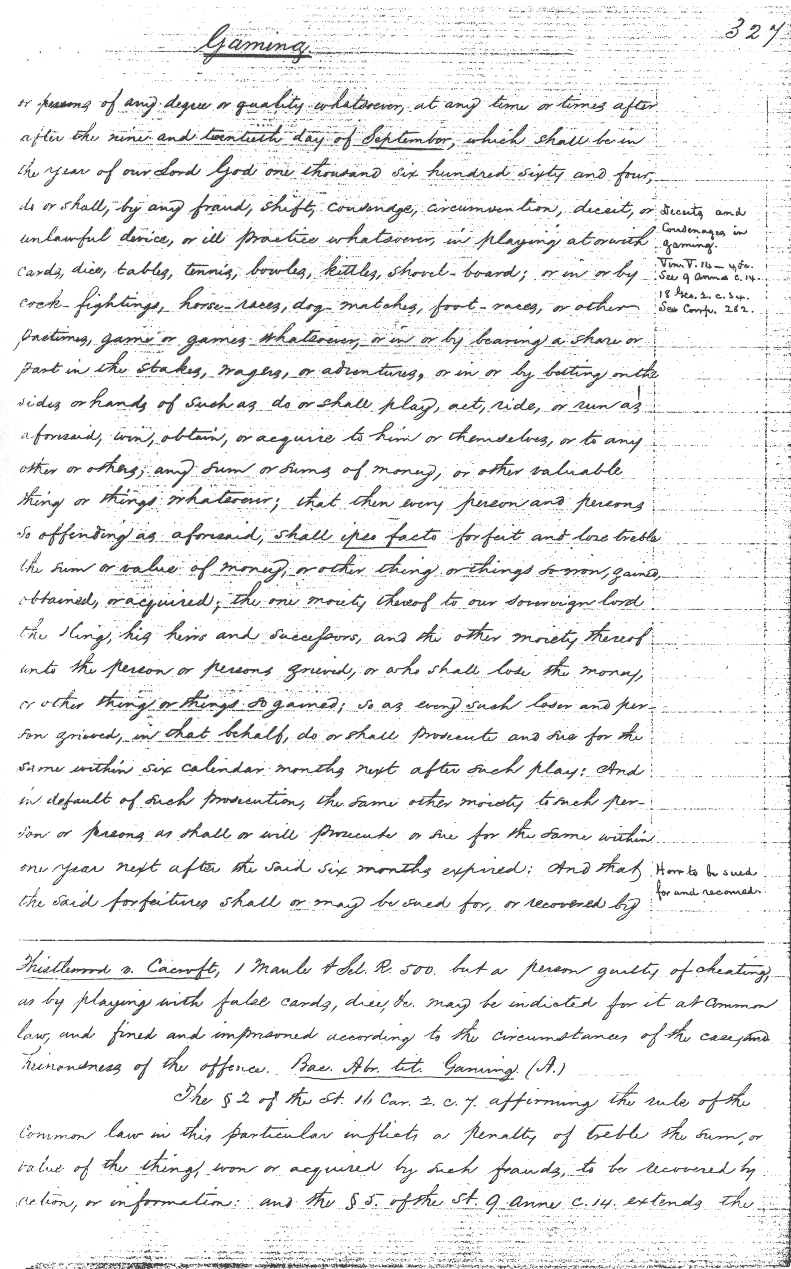 327
Gaming.
or persons of any degree or quality whatsoever, at any time or times after
after the nine and twentieth day of September, which shall be in
the year of our Lord God one thousand six hundred sixty and four,
do or shall, by any fraud, shift, cousenage, circumvention, deceit, or
unlawful device, or ill practice whatsoever, in playing at or with
cards, dice, tables, tennis, bowles, kettles, shovel-board; or in or by
cock-fightings, horse-races, dog-matches, foot-races, or other
pastimes, game or games whatsoever, or in or by bearing a share or
part in the stakes, wagers, or adventures, or in or by betting on the
sides or hands of such as do or shall play, act, ride, or run as
aforesaid, win, obtain, or acquire to him or themselves, or to any
other or others, any sum or sums of money, or other valuable
thing or things whatsoever; that then every person and persons
so offending as aforesaid, shall ipso facto forfeit and lose treble
the sum or value of money, or other thing or things so won, gained,
obtained, or acquired; the one moiety thereof to our sovereign lord
the King, his heirs and successors, and the other moiety thereof
unto the person or persons grieved, or who shall lose the money,
or other thing or things so gained; so as every such loser and per-
son grieved, in that behalf, do or shall prosecute and sue for the
same within six calendar months next after such play: And
in default of such prosecution, the same other moiety to such per-
son or persons as shall or will prosecute or sue for the same within
one year next after the said six months expired: And that
the said forfeitures shall or may be sued for, or recovered by
Deceits and
Cousenages in
gaming.
See 9 Anne c. 14.
18 Geo. 2. c. 34.
See Comp. 282.
How to be sued
for and recovered.
Thistlewood v. Cracroft, 1 Maule & Sel. R. 500. but a person guilty of cheating,
as by playing with false cards, dice, &c. may be indicted for it at common
law, and fined and imprisoned according to the circumstances of the case, and
heinousness of the offence. Bac. Abr. tit. Gaming (A.)
The § 2 of the St. 16 Car. 2. c. 7. affirming the rule of the
common law in this particular inflicts a penalty of treble the sum, or
value of the thing, won or acquired by such frauds, to be recovered by
action, or information: and the § 5. of the St. 9 Anne c. 14. extends the